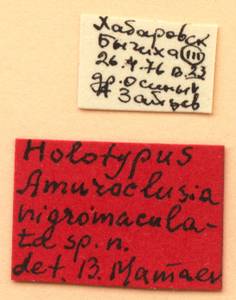 Хабаровск
Бычиха (III)
26.4.76 в.
др. осины
Зайцев
Holotypus
Amuroclusia
nigromacula-
ta sp. n.
det. B. Mamaev